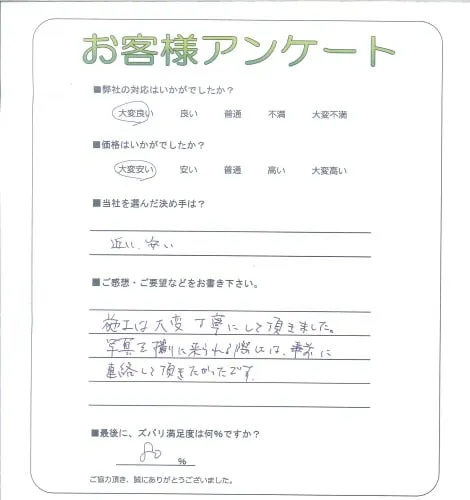 お客様アンケート
■弊社の対応はいかがでしたか？
大変良い 良い 普通 不満 大変不満
■価格はいかがでしたか？
大変安い 安い 普通 高い 大変高い
■当社を選んだ決め手は？
近い、安い
■ご感想・ご要望などをお書き下さい。
施工は大変丁寧にして頂きました。
写真を撮りに来られる際には、事前に
連絡して頂きたかったです。
■最後に、ズバリ満足度は何%ですか？
80 %
ご協力頂き、誠にありがとうございました。